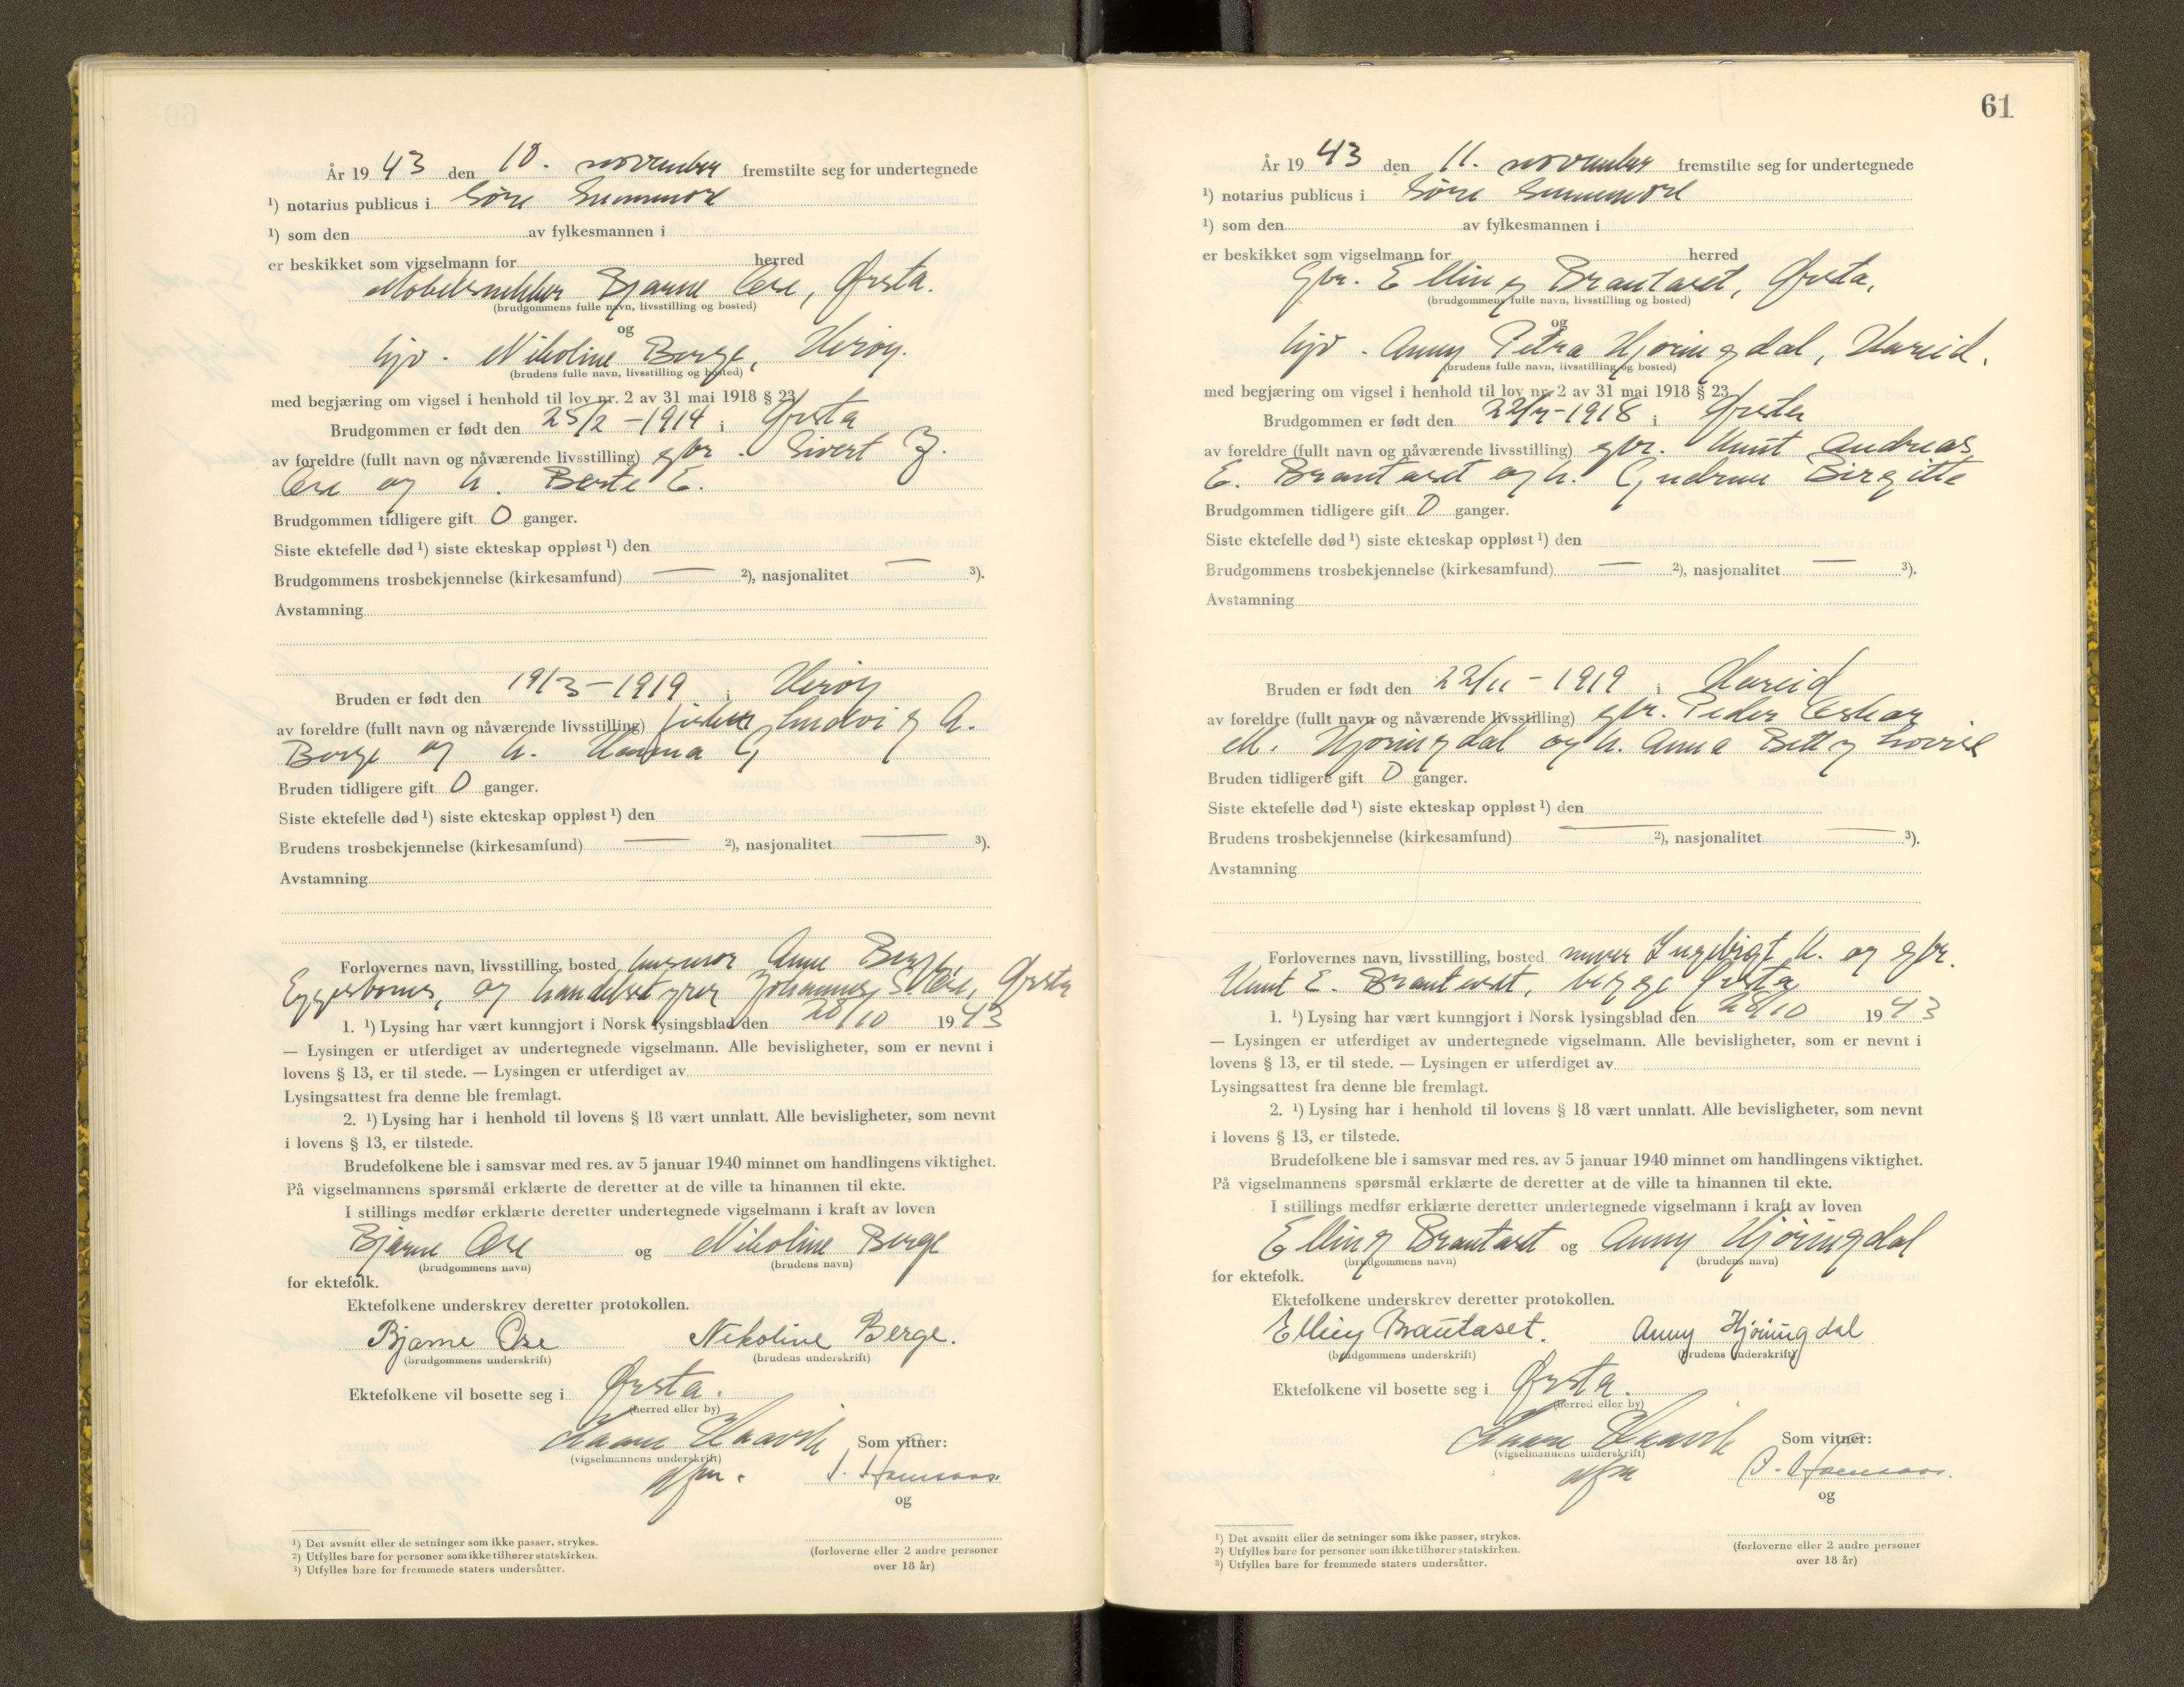 År 19 43 den 10. november fremstilte seg for undertegnede
¹) notarius publicus i Søre Sunnmøre
¹) som den av fylkesmannen i
er beskikket som vigselmann for herred
Møbelsnekker Bjarne Ose, Ørsta.
(brudgommens fulle navn, livsstilling og bosted)
og
hjv. Nikoline Berge, Herøy.
(brudens fulle navn, livsstilling og bosted)
med begjæring om vigsel i henhold til lov nr. 2 av 31 mai 1918 § 23
Brudgommen er født den 25/2 - 1914 i Ørsta
av foreldre (fullt navn og nåværende livsstilling) gbr. Sivert J.
Ose og h. Berte E.
Brudgommen tidligere gift 0 ganger.
Siste ektefelle død ¹) siste ekteskap oppløst ¹) den
Brudgommens trosbekjennelse (kirkesamfund) — ²), nasjonalitet — ³).
Avstamning
Bruden er født den 19/3 - 1919 i Herøy
av foreldre (fullt navn og nåværende livsstilling) fisker Ludvig A.
Berge og h. Hanna G
Bruden tidligere gift 0 ganger.
Siste ektefelle død ¹) siste ekteskap oppløst ¹) den
Brudens trosbekjennelse (kirkesamfund) — ²), nasjonalitet — ³).
Avstamning
Forlovernes navn, livsstilling, bosted husmor Anne Berge
Eggesbønes, og handelsstyrer Johannes S. Ose, Ørsta
1. ¹) Lysing har vært kunngjort i Norsk lysingsblad den 28/10 19 43
— Lysingen er utferdiget av undertegnede vigselmann. Alle bevisligheter, som er nevnt i
lovens § 13, er til stede. — Lysingen er utferdiget av
Lysingsattest fra denne ble fremlagt.
2. ¹) Lysing har i henhold til lovens § 18 vært unnlatt. Alle bevisligheter, som nevnt
i lovens § 13, er tilstede.
Brudefolkene ble i samsvar med res. av 5 januar 1940 minnet om handlingens viktighet.
På vigselmannens spørsmål erklærte de deretter at de ville ta hinannen til ekte.
I stillings medfør erklærte deretter undertegnede vigselmann i kraft av loven
Bjarne Ose og Nikoline Berge
(brudgommens navn) (brudens navn)
for ektefolk.
Ektefolkene underskrev deretter protokollen.
Bjarne Ose Nikoline Berge.
(brudgommens underskrift) (brudens underskrift)
Ektefolkene vil bosette seg i Ørsta.
(herred eller by)
Kaare Haavik Som vitner:
(vigselmannens underskrift)
dfm.
og
¹) Det avsnitt eller de setninger som ikke passer, strykes.
²) Utfylles bare for personer som ikke tilhører statskirken.
³) Utfylles bare for fremmede staters undersåtter.
(forloverne eller 2 andre personer
over 18 år)
61
År 19 43 den 11. november fremstilte seg for undertegnede
¹) notarius publicus i Søre Sunnmøre
¹) som den av fylkesmannen i
er beskikket som vigselmann for herred
Gbr. Elling Brautaset, Ørsta,
(brudgommens fulle navn, livsstilling og bosted)
og
hjv. Anny Petra Hjøringdal, Hareid.
(brudens fulle navn, livsstilling og bosted)
med begjæring om vigsel i henhold til lov nr. 2 av 31 mai 1918 § 23
Brudgommen er født den 22/7 - 1918 i Ørsta
av foreldre (fullt navn og nåværende livsstilling) gbr. Knut Andreas
E. Brautaset og h. Gudrun Birgitte
Brudgommen tidligere gift 0 ganger.
Siste ektefelle død ¹) siste ekteskap oppløst ¹) den
Brudgommens trosbekjennelse (kirkesamfund) — ²), nasjonalitet — ³).
Avstamning
Bruden er født den 22/11 - 1919 i Hareid
av foreldre (fullt navn og nåværende livsstilling) gbr. Peder Oskar
M. Hjøringdal og h. Anna Betty Lovise
Bruden tidligere gift 0 ganger.
Siste ektefelle død ¹) siste ekteskap oppløst ¹) den
Brudens trosbekjennelse (kirkesamfund) — ²), nasjonalitet — ³).
Avstamning
Forlovernes navn, livsstilling, bosted murer Ingebrigt K. og gbr.
Knut E. Brautaset, begge Ørsta
1. ¹) Lysing har vært kunngjort i Norsk lysingsblad den 28/10 19 43
— Lysingen er utferdiget av undertegnede vigselmann. Alle bevisligheter, som er nevnt i
lovens § 13, er til stede. — Lysingen er utferdiget av
Lysingsattest fra denne ble fremlagt.
2. ¹) Lysing har i henhold til lovens § 18 vært unnlatt. Alle bevisligheter, som nevnt
i lovens § 13, er tilstede.
Brudefolkene ble i samsvar med res. av 5 januar 1940 minnet om handlingens viktighet.
På vigselmannens spørsmål erklærte de deretter at de ville ta hinannen til ekte.
I stillings medfør erklærte deretter undertegnede vigselmann i kraft av loven
Elling Brautaset og Anny Hjøringdal
(brudgommens navn) (brudens navn)
for ektefolk.
Ektefolkene underskrev deretter protokollen.
Elling Brautaset. Anny Hjøringdal
(brudgommens underskrift) (brudens underskrift)
Ektefolkene vil bosette seg i Ørsta.
(herred eller by)
Kaare Haavik Som vitner:
(vigselmannens underskrift)
dfm
og
¹) Det avsnitt eller de setninger som ikke passer, strykes.
²) Utfylles bare for personer som ikke tilhører statskirken.
³) Utfylles bare for fremmede staters undersåtter.
(forloverne eller 2 andre personer
over 18 år)